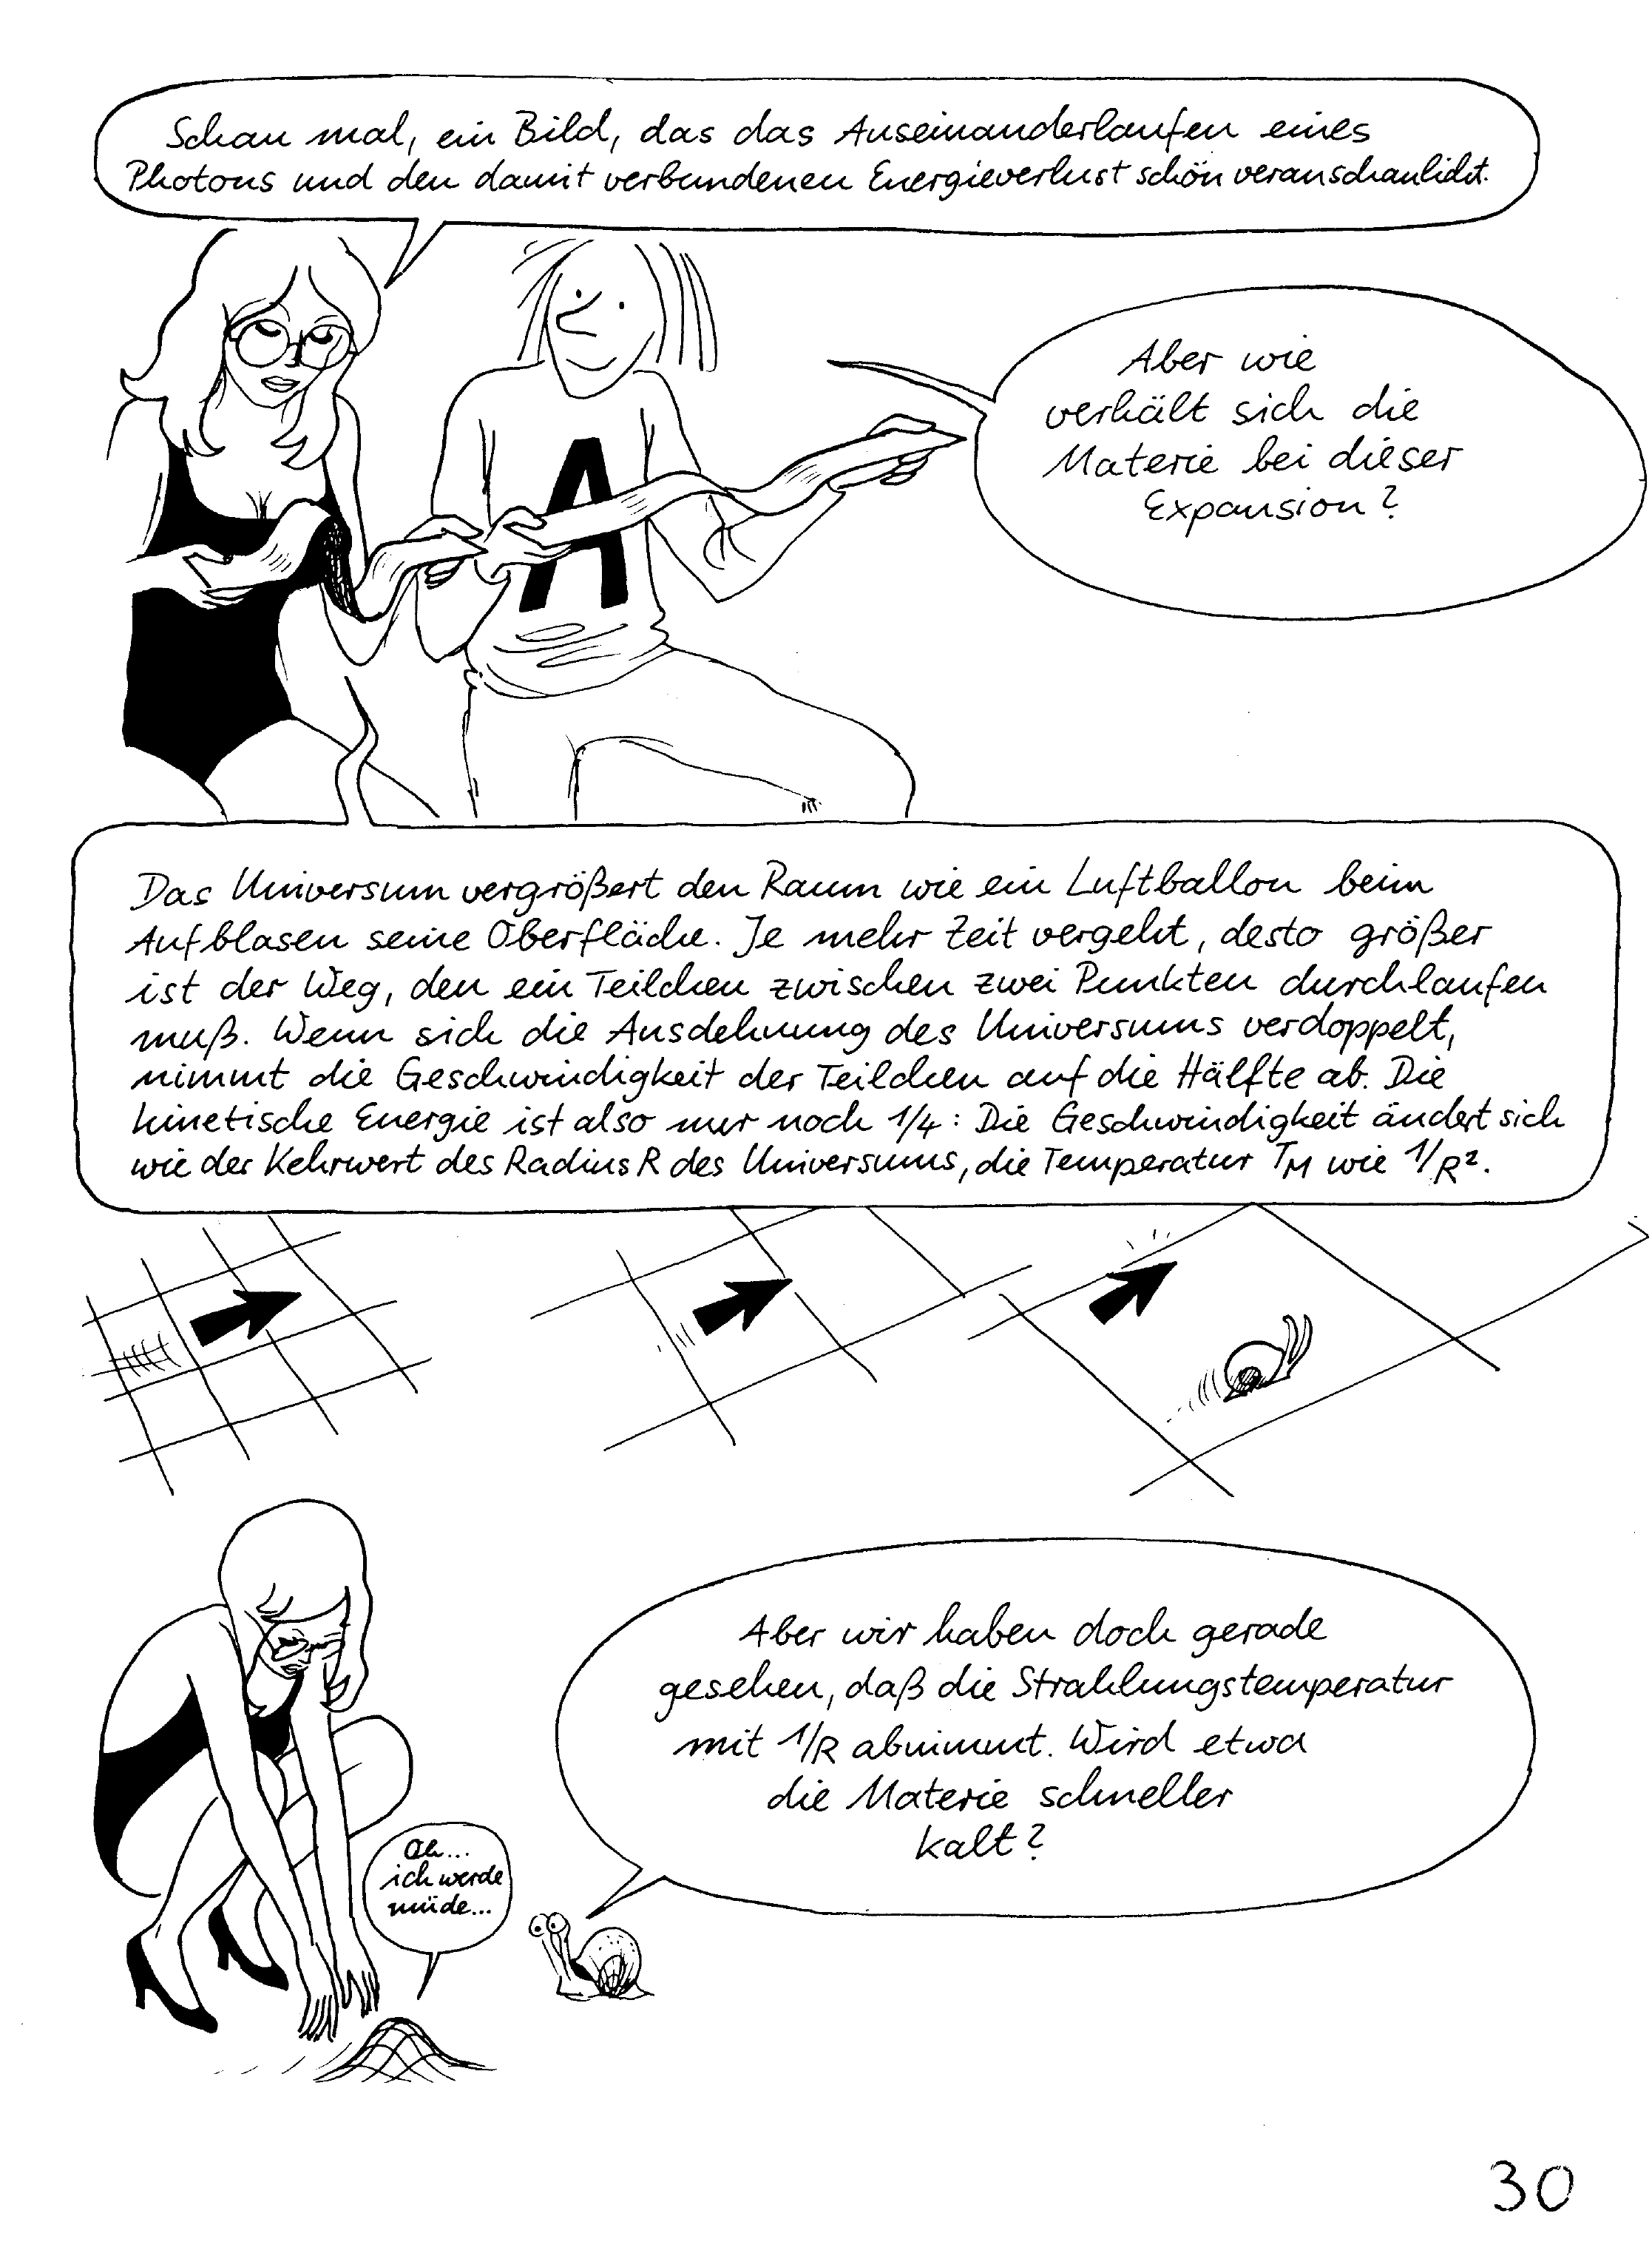 Schau mal, ein Bild, das das Auseinanderlaufen eines
Photons und den damit verbundenen Energieverlust schön veranschaulicht.
A
Aber wie
verhält sich die
Materie bei dieser
Expansion?
Das Universum vergrößert den Raum wie ein Luftballon beim
Aufblasen seine Oberfläche. Je mehr Zeit vergeht, desto größer
ist der Weg, den ein Teilchen zwischen zwei Punkten durchlaufen
muß. Wenn sich die Ausdehnung des Universums verdoppelt,
nimmt die Geschwindigkeit der Teilchen auf die Hälfte ab. Die
kinetische Energie ist also nur noch 1/4: Die Geschwindigkeit ändert sich
wie der Kehrwert des Radius R des Universums, die Temperatur TM wie 1/R².
Aber wir haben doch gerade
gesehen, daß die Strahlungstemperatur
mit 1/R abnimmt. Wird etwa
die Materie schneller
kalt?
Oh...
ich werde
müde...
30